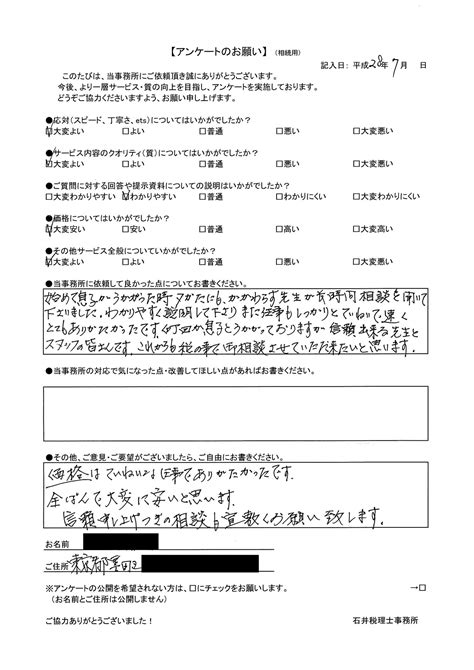 【アンケートのお願い】(相続用)
記入日: 平成28年7月 日
このたびは、当事務所にご依頼頂き誠にありがとうございます。
今後、より一層サービス・質の向上を目指し、アンケートを実施しております。
どうぞご協力くださいますよう、お願い申し上げます。
●応対(スピード、丁寧さ、ets)についてはいかがでしたか?
☑大変よい □よい □普通 □悪い □大変悪い
●サービス内容のクオリティ(質)についてはいかがでしたか?
☑大変よい □よい □普通 □悪い □大変悪い
●ご質問に対する回答や提示資料についての説明はいかがでしたか?
□大変わかりやすい ☑わかりやすい □普通 □わかりにくい □大変わかりにくい
●価格についてはいかがでしたか?
☑大変安い □安い □普通 □高い □大変高い
●その他サービス全般についていかがでしたか?
☑大変よい □よい □普通 □悪い □大変悪い
●当事務所に依頼して良かった点についてお書きください。
始めて息子がうかがった時夕がたにも、かかわらず先生が長時間相談を聞いて
下さいました。わかりやすく説明して下さりまた仕事もしっかりとていねいで速く
とてもありがたかったです。何回か息子とうかがっておりますが信頼出来る先生と
スタッフの皆さんです。これからも税の事で御相談させていただき来たいと思います。
●当事務所の対応で気になった点・改善してほしい点があればお書きください。
●その他、ご意見・ご要望がございましたら、ご自由にお書きください。
価格はていねいな仕事でありがたかったです。
全ぱんで大変に安いと思います。
信頼申し上げつぎの相談も宜敷くお願い致します。
お名前
ご住所 東京都墨田区
※アンケートの公開を希望されない方は、□にチェックをお願いします。 →□
(お名前とご住所は公開しません)
ご協力ありがとうございました! 石井税理士事務所